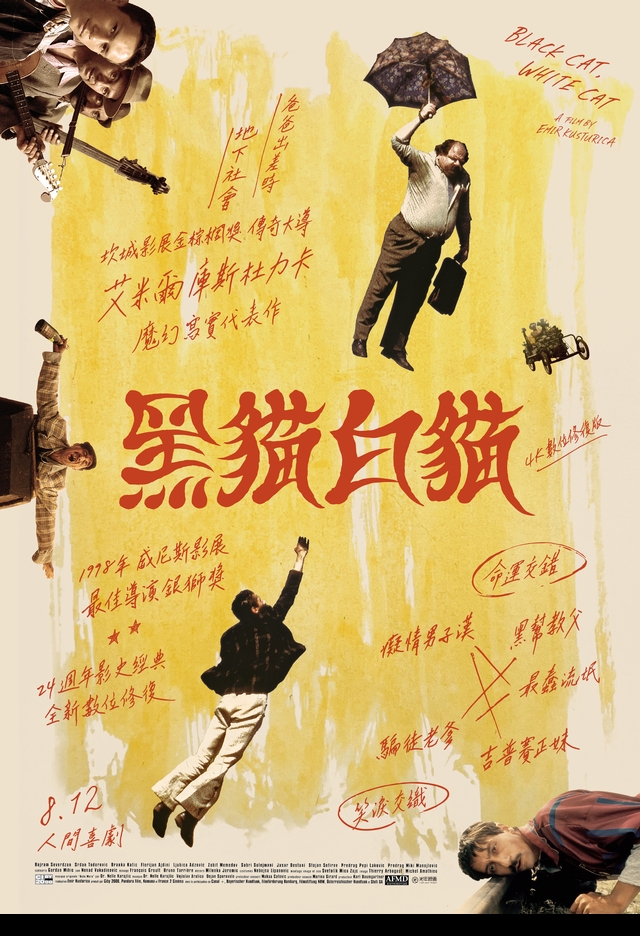 BLACK CAT,
WHITE CAT
A FILM BY
EMIR KUSTURICA
爸爸出差時
地下社會
坎城影展金棕櫚獎 傳奇大導
艾米爾 庫斯杜力卡
魔幻寫實代表作
黑貓白貓
4K數位修復版
1998年 威尼斯影展
最佳導演銀獅獎
24週年影史經典
全新數位修復
命運交錯
癡情男子漢
黑幫教父
最蠢流氓
騙徒老爹
吉普賽正妹
笑淚交織
8.12
人間喜劇
Bajram Severdzan Srdan Todorovic Branka Katic Florijan Ajdini Ljubica Adzovic Zabit Memedov Sabri Sulejmani Jasar Destani Stojan Sotirov Predrag Pepi Lakovic Predrag Miki Manojlovic
AFMD